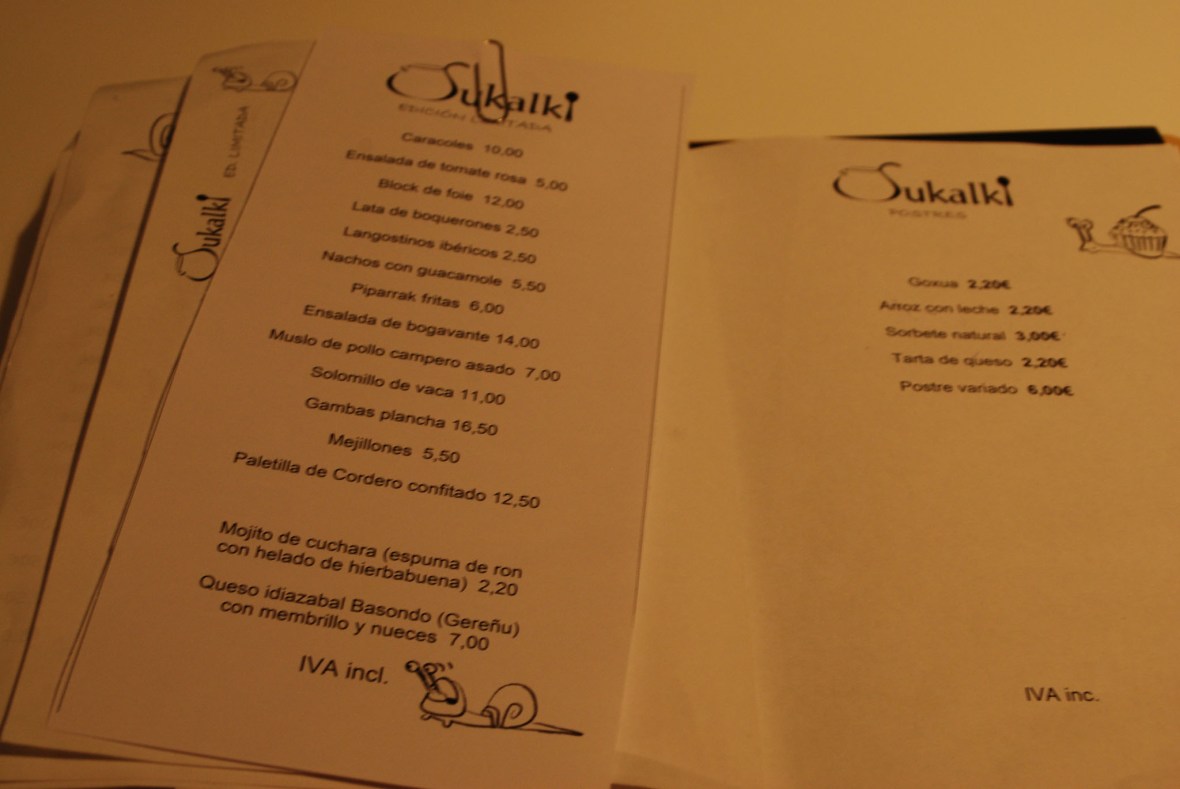 Sukalki
ED. LIMITADA
Sukalki
EDICIÓN LIMITADA
Caracoles 10,00
Ensalada de tomate rosa 5,00
Block de foie 12,00
Lata de boquerones 2,50
Langostinos ibéricos 2,50
Nachos con guacamole 5,50
Piparrak fritas 6,00
Ensalada de bogavante 14,00
Muslo de pollo campero asado 7,00
Solomillo de vaca 11,00
Gambas plancha 16,50
Mejillones 5,50
Paletilla de Cordero confitado 12,50
Mojito de cuchara (espuma de ron
con helado de hierbabuena) 2,20
Queso idiazabal Basondo (Gereñu)
con membrillo y nueces 7,00
IVA incl.
Sukalki
POSTRES
Goxua 2,20€
Arroz con leche 2,20€
Sorbete natural 3,00€
Tarta de queso 2,20€
Postre variado 6,00€
IVA inc.